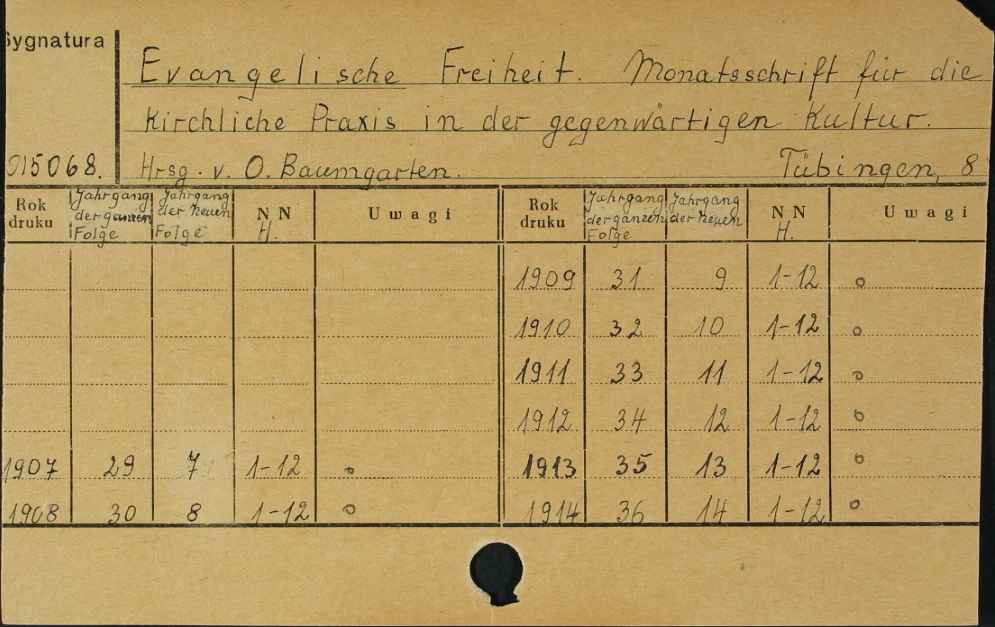 Sygnatura
Evangelische Freiheit. Monatsschrift für die
kirchliche Praxis in der gegenwärtigen Kultur.
015068. Hrsg. v. O. Baumgarten. Tübingen, 8
Rok druku Jahrgang der ganzen Folge Jahrgang der neuen Folge NN H. Uwagi Rok druku Jahrgang der ganzen Folge Jahrgang der neuen NN H. Uwagi
1909 31 9 1-12 o
1910 32 10 1-12 o
1911 33 11 1-12 o
1912 34 12 1-12 o
1907 29 7 1-12 o 1913 35 13 1-12 o
1908 30 8 1-12 o 1914 36 14 1-12 o